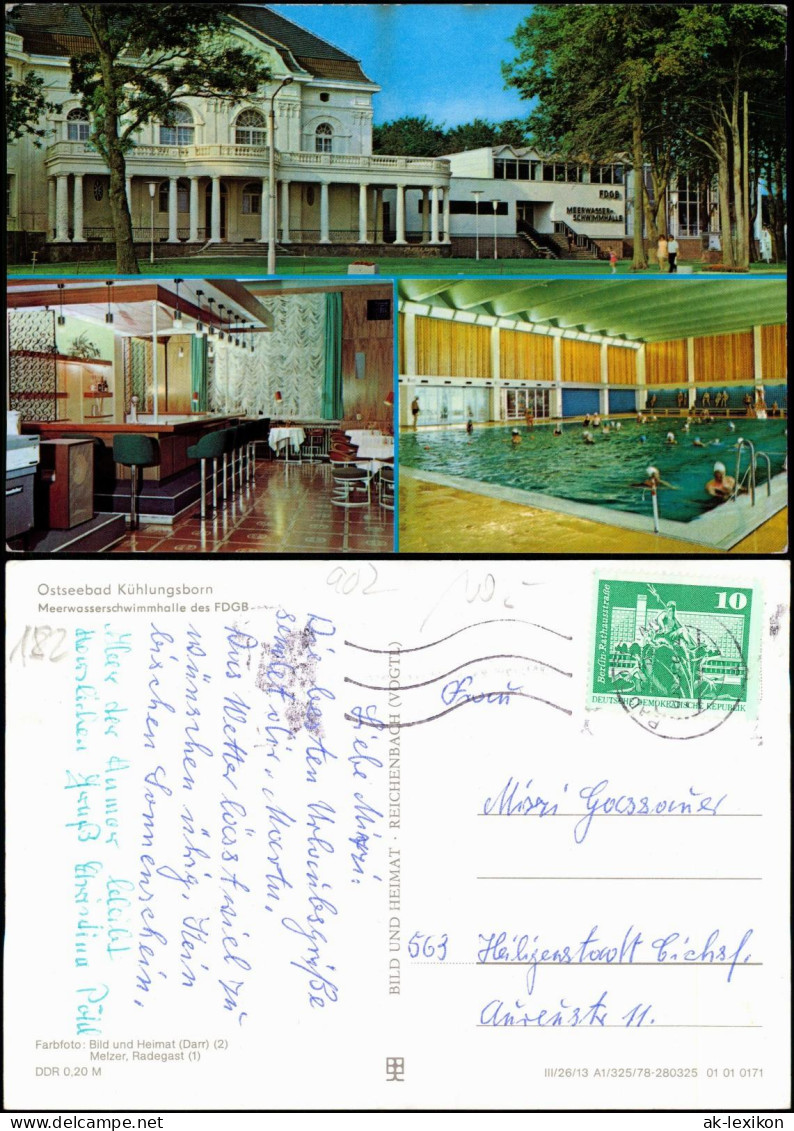 FDGB
MEERWASSER-
SCHWIMMHALLE
Ostseebad Kühlungsborn
Meerwasserschwimmhalle des FDGB
902
100,-
182
Berlin-Rathausstraße
10
DEUTSCHE DEMOKRATISCHE REPUBLIK
Liebe Mizzi!
Die besten Urlaubsgrüße
sendet dir, Martin.
Das Wetter lässt viel zu
wünschen übrig. Kein
bischen Sonnenschein.
Aber der Humor bleibt
Herzlichen Gruß Christina
BILD UND HEIMAT · REICHENBACH (VOGTL)
Frau
Mizzi Gassauer
563 Heiligenstadt Eichsf.
Aureustr 11.
Farbfoto: Bild und Heimat (Darr) (2)
Melzer, Radegast (1)
DDR 0,20 M
III/26/13 A1/325/78-280325 01 01 0171
ak-lexikon.com